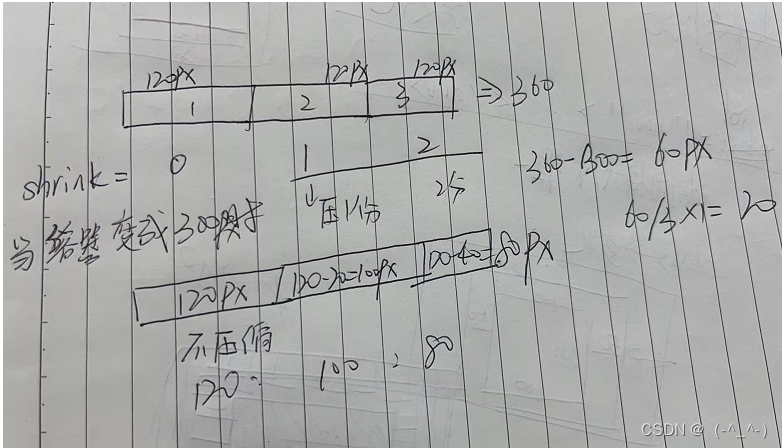 120px 120px 120px
1 2 3 ⇒360
shrink= 0 1 2
360-300= 60px
↓压1份 2份
60/3×1= 20
当容器变成300px时
120px 120-20=100px 120-40=80px
不压缩
120 : 100 : 80
CSDN @ (-^_^-)